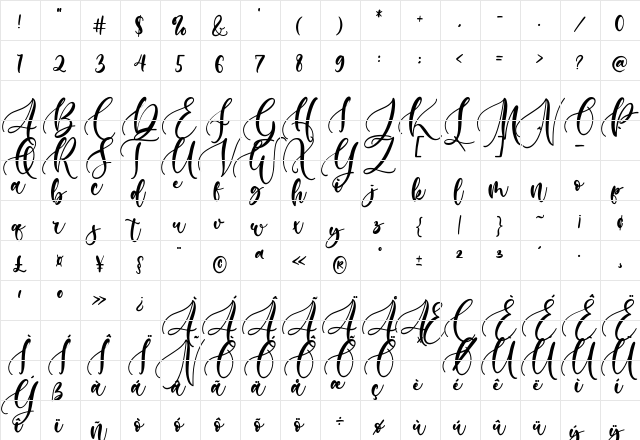 ! " # $ % & ' ( ) * + , - . / 0
1 2 3 4 5 6 7 8 9 : ; < = > ? @
A B C D E F G H I J K L M N O P
Q R S T U V W X Y Z [ ] _
a b c d e f g h i j k l m n o p
q r s t u v w x y z { | } ~ ¡ ¢
£ ¤ ¥ § ¨ © ª « ® ° ± ² ³ ´ · ¸
¹ º » ¿ À Á Â Ã Ä Å Æ Ç È É Ê Ë
Ì Í Î Ï Ñ Ò Ó Ô Õ Ö × Ø Ù Ú Û Ü
Ý ß à á â ã ä å æ ç è é ê ë ì í
î ï ñ ò ó ô õ ö ÷ ø ù ú û ü ý ÿ